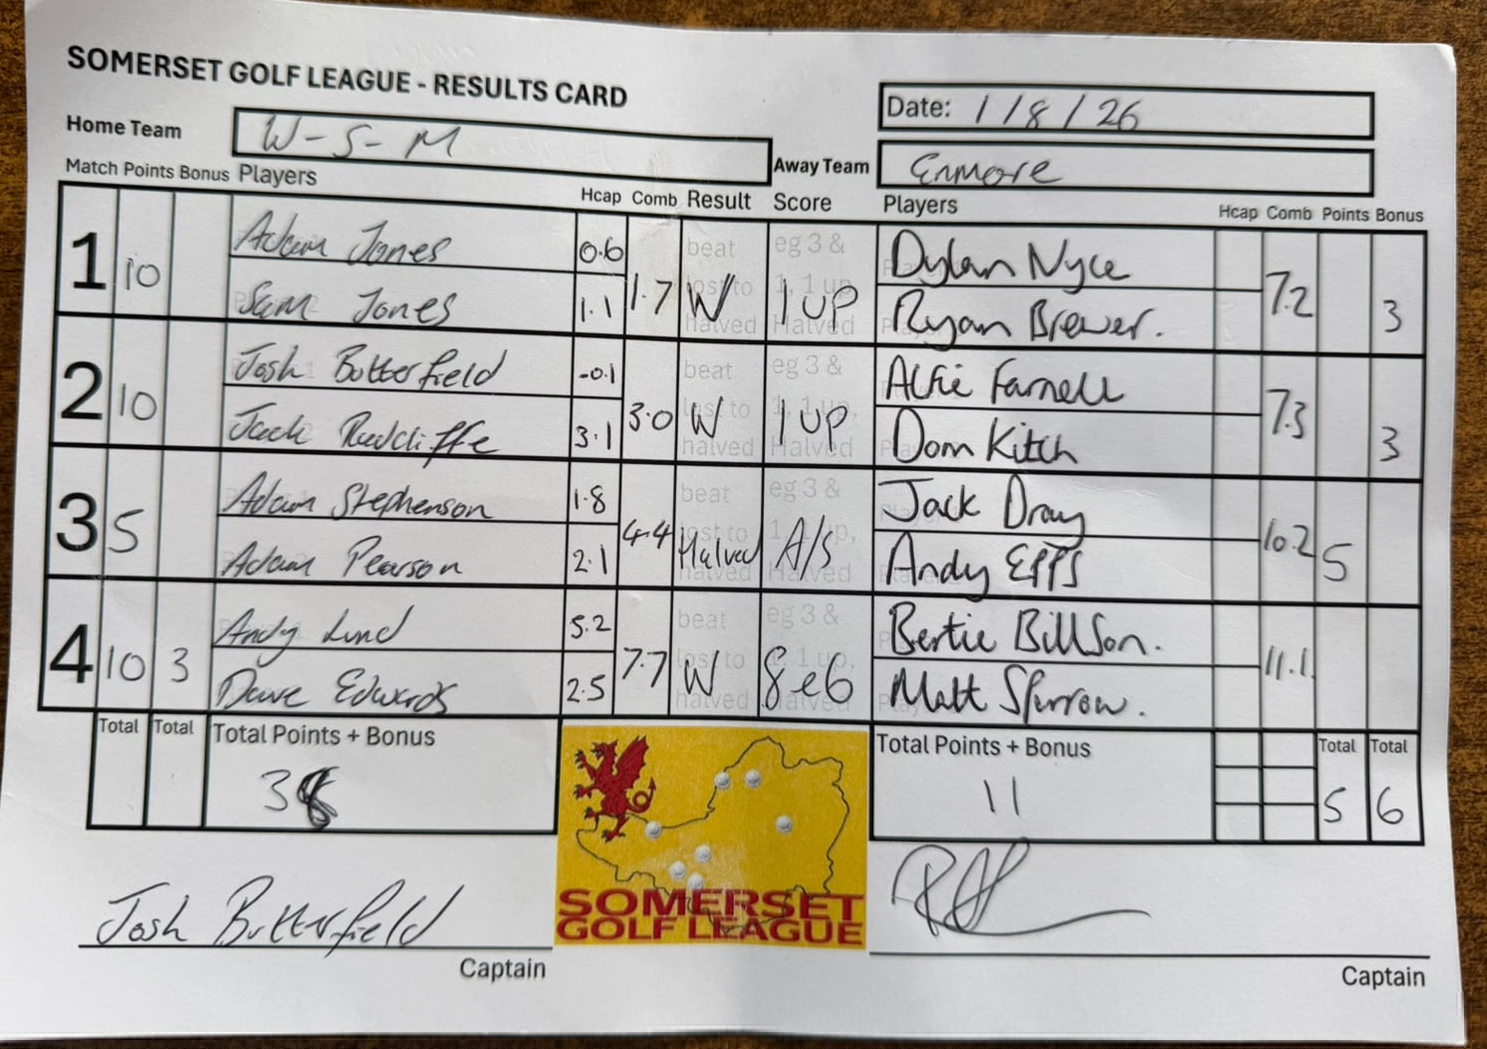 SOMERSET GOLF LEAGUE - RESULTS CARD
Date: 1/8/26
Home Team W-S-M
Away Team Enmore
Match Points Bonus Players Hcap Comb Result Score Players Hcap Comb Points Bonus
1 10 Adam Jones 0.6 1.7 W 1 UP Dylan Nyce 7.2 3
Sam Jones 1.1 Ryan Brewer.
beat eg 3 &
lost to 1, 1 up,
halved Halved
2 10 Josh Butterfield -0.1 3.0 W 1 UP Alfie Farnell 7.3 3
Jack Radcliffe 3.1 Dom Kitch
beat eg 3 &
lost to 1, 1 up,
halved Halved
3 5 Adam Stephenson 1.8 4.4 Halved A/S Jack Dray 10.2 5
Adam Pearson 2.1 Andy Epps
beat eg 3 &
lost to 1, 1 up,
halved Halved
4 10 3 Andy Lund 5.2 7.7 W 8e6 Bertie Billson. 11.1
Dave Edwards 2.5 Matt Sparrow.
beat eg 3 &
lost to 1, 1 up,
halved Halved
Total Total Total Points + Bonus Total Points + Bonus Total Total
38 11 5 6
SOMERSET
GOLF LEAGUE
Josh Butterfield
Captain Captain